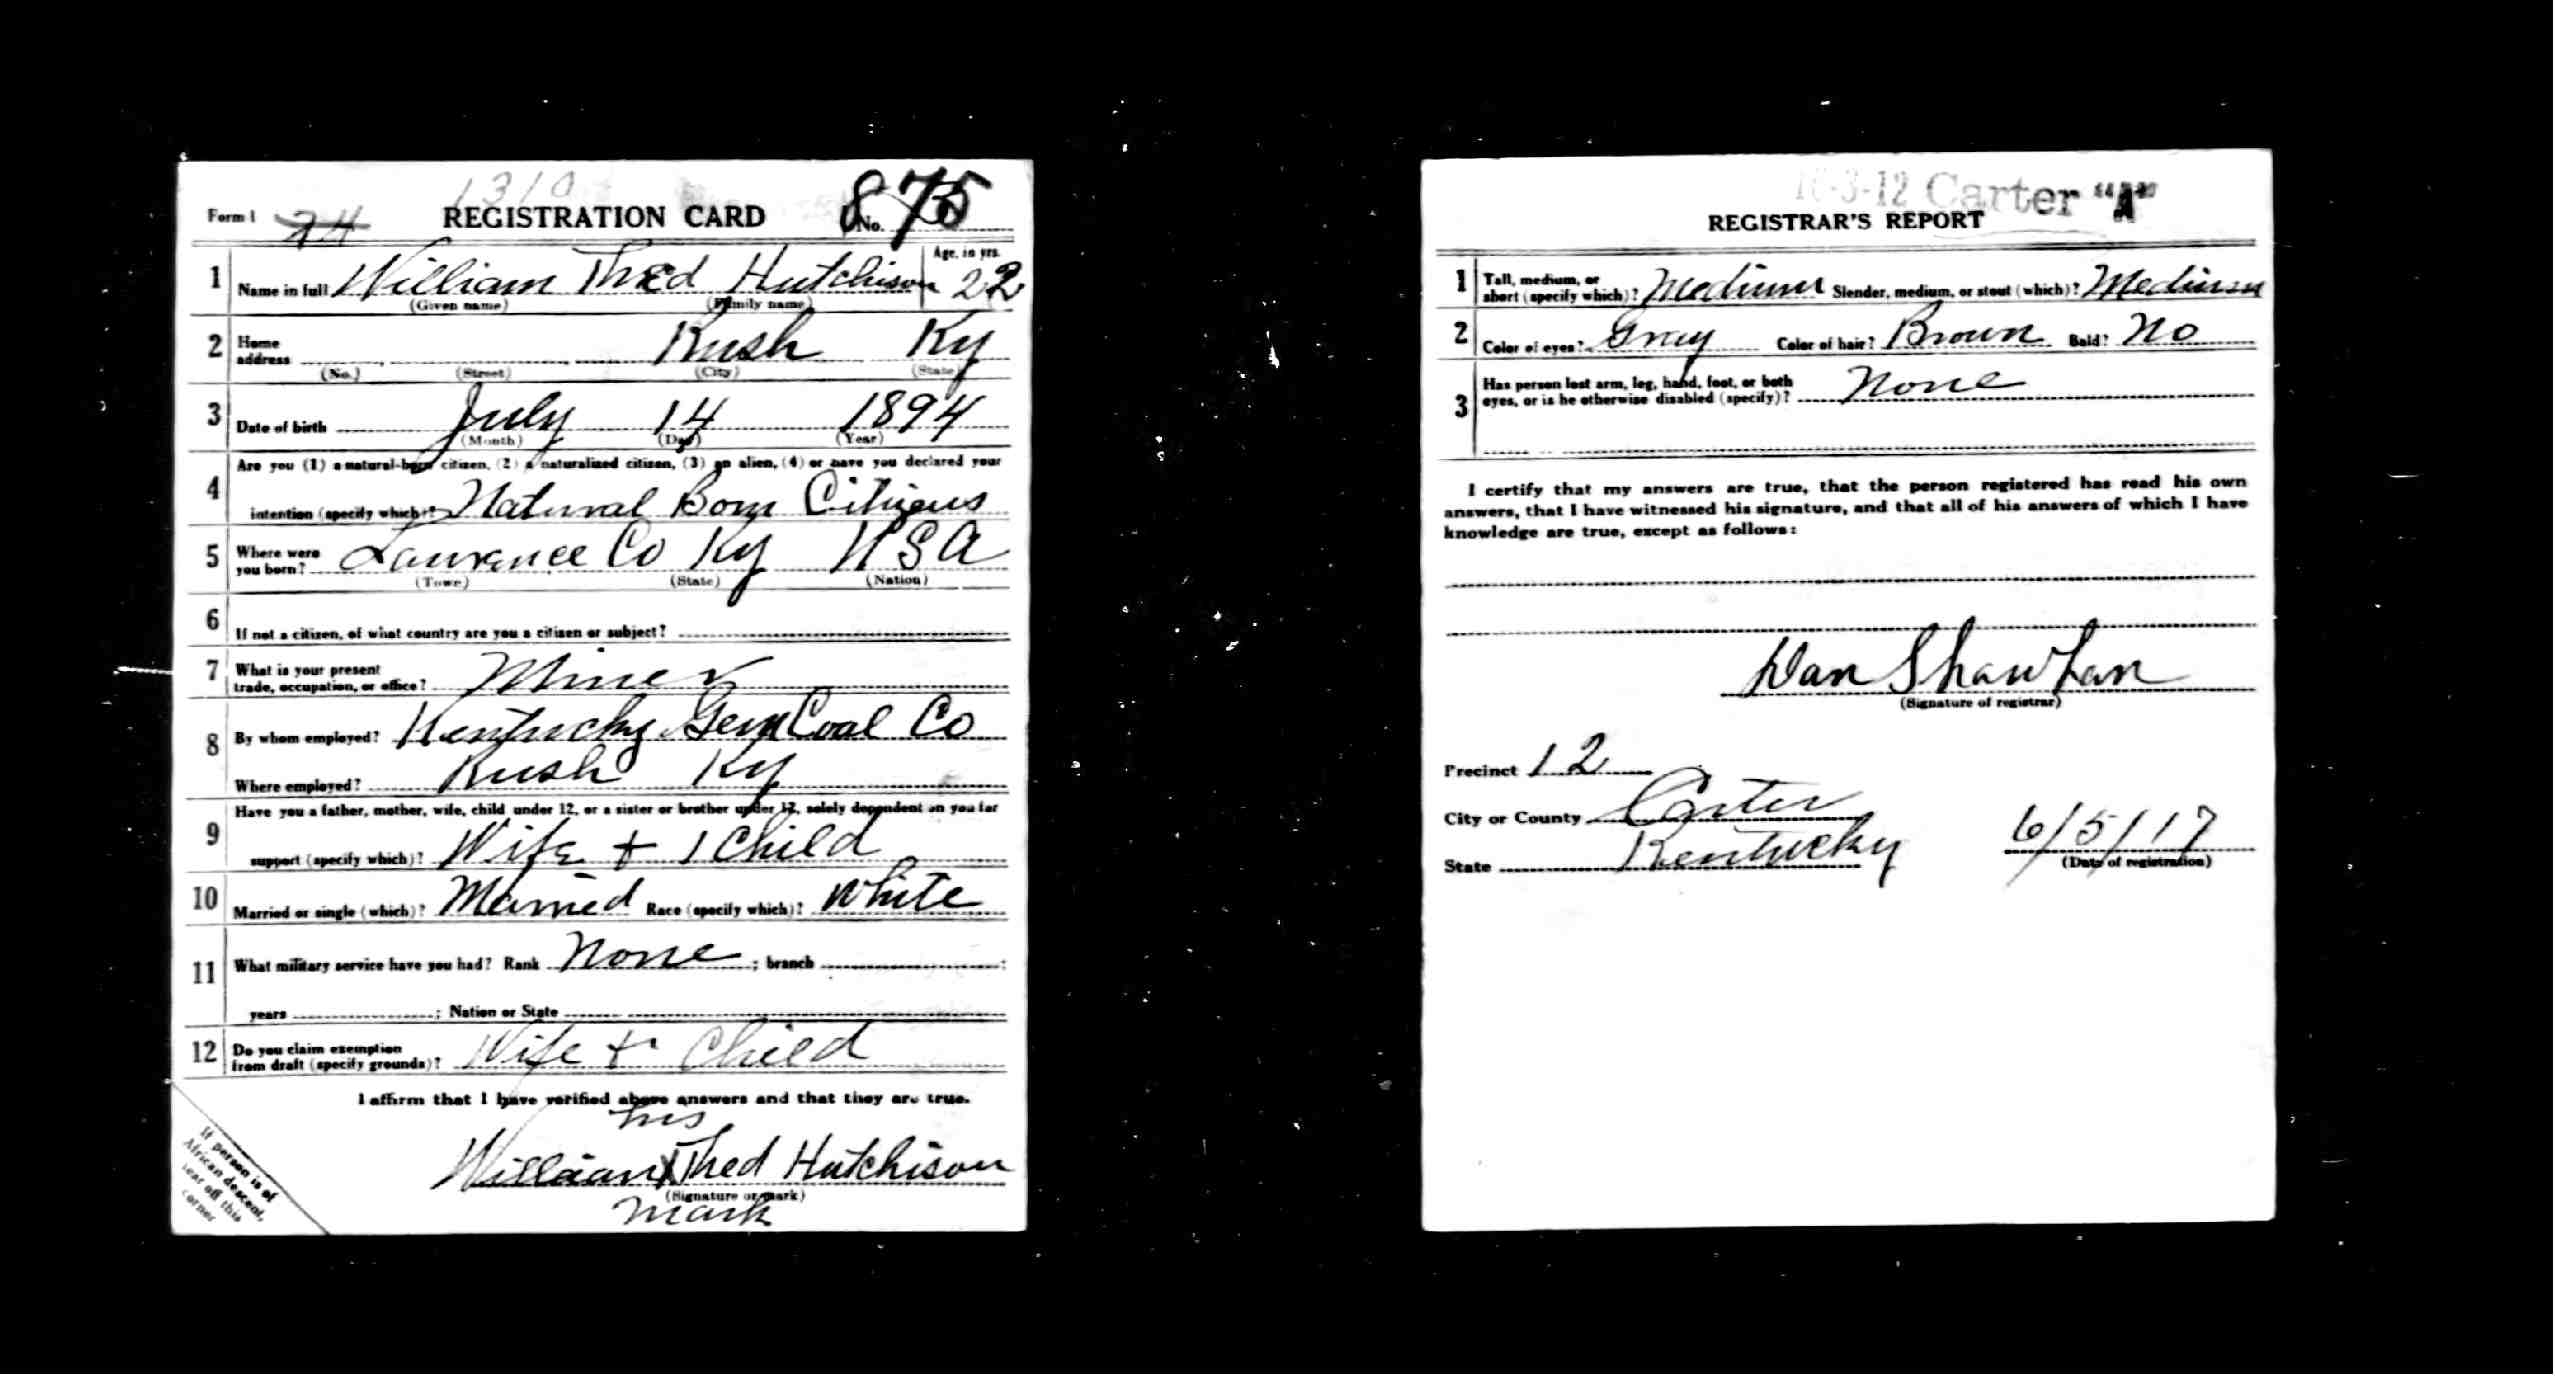 1310
Form 1 24 REGISTRATION CARD No. 875
1 Name in full William Thed Hutchison Age, in yrs. 22
(Given name) (Family name)
2 Home address Rush Ky
(No.) (Street) (City) (State)
3 Date of birth July 14 1894
(Month) (Day) (Year)
4 Are you (1) a natural-born citizen, (2) a naturalized citizen, (3) an alien, (4) or have you declared your
intention (specify which)? Natural Born Citizens
5 Where were you born? Lawrence Co Ky USA
(Town) (State) (Nation)
6 If not a citizen, of what country are you a citizen or subject?
7 What is your present trade, occupation, or office? Miner
8 By whom employed? Kentucky Gem Coal Co
Where employed? Rush Ky
9 Have you a father, mother, wife, child under 12, or a sister or brother under 12, solely dependent on you for
support (specify which)? Wife + 1 Child
10 Married or single (which)? Married Race (specify which)? White
11 What military service have you had? Rank None ; branch ;
years ; Nation or State
12 Do you claim exemption from draft (specify grounds)? Wife + Child
I affirm that I have verified above answers and that they are true.
his
William X Thed Hutchison
(Signature or mark)
mark
If person is of
African descent,
tear off this
corner
16-3-12 Carter "A"
REGISTRAR'S REPORT
1 Tall, medium, or short (specify which)? Medium Slender, medium, or stout (which)? Medium
2 Color of eyes? Gray Color of hair? Brown Bald? No
3 Has person lost arm, leg, hand, foot, or both
eyes, or is he otherwise disabled (specify)? None
I certify that my answers are true, that the person registered has read his own
answers, that I have witnessed his signature, and that all of his answers of which I have
knowledge are true, except as follows:
Dan Shawhan
(Signature of registrar)
Precinct 12
City or County Carter
State Kentucky 6/5/17
(Date of registration)